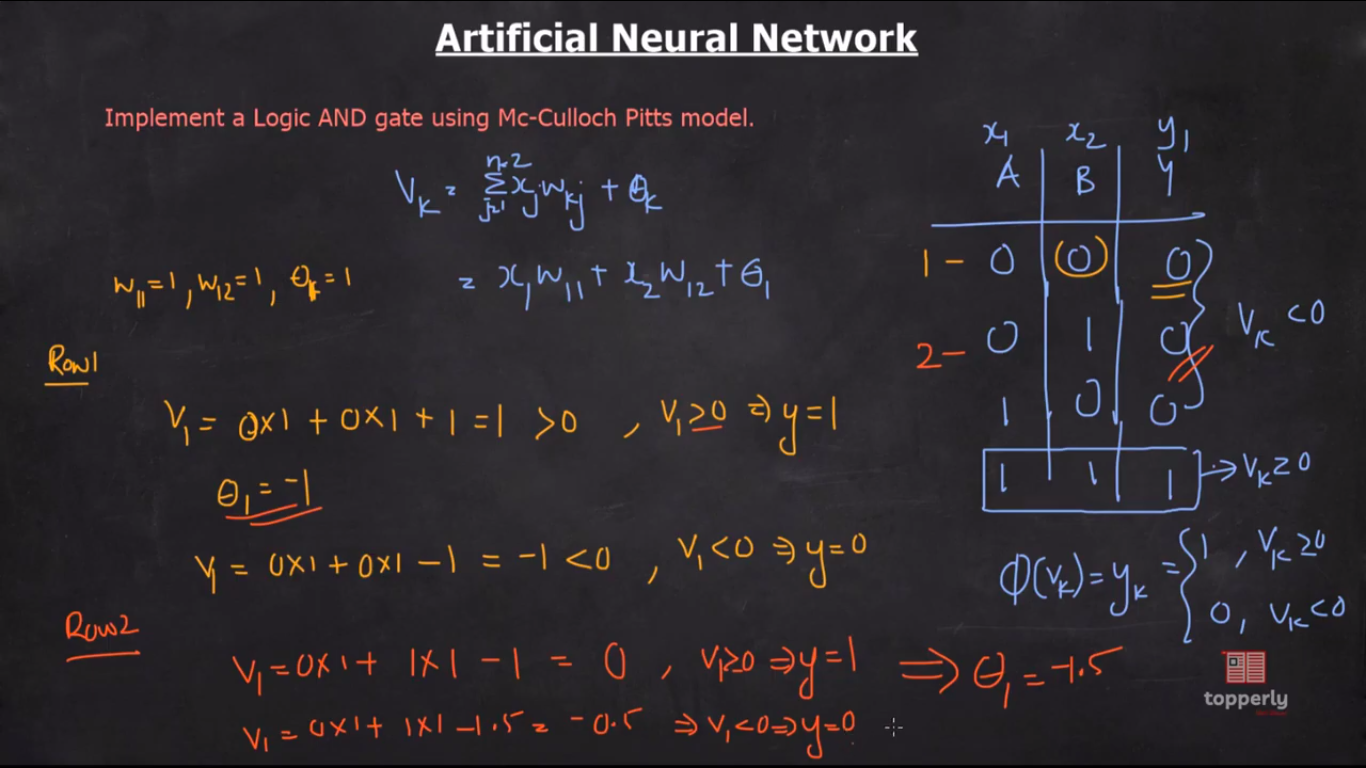 Artificial Neural Network
Implement a Logic AND gate using Mc-Culloch Pitts model.
V_k = Σ_{j=1}^{n=2} x_j w_kj + θ_k
= x_1 w_11 + x_2 w_12 + θ_1
w_11 = 1, w_12 = 1, θ_k = 1
Row1
V_1 = 0×1 + 0×1 + 1 = 1 > 0 , V_1 ≥ 0 ⇒ y = 1
θ_1 = -1
V_1 = 0×1 + 0×1 - 1 = -1 < 0 , V_1 < 0 ⇒ y = 0
Row2
V_1 = 0×1 + 1×1 - 1 = 0 , V_1 ≥ 0 ⇒ y = 1 ⇒ θ_1 = -1.5
V_1 = 0×1 + 1×1 - 1.5 = -0.5 ⇒ V_1 < 0 ⇒ y = 0
x_1 x_2 y_1
A B Y
1 - 0 0 0
2 - 0 1 0
V_k < 0
1 0 0
1 1 1 → V_k ≥ 0
Φ(V_k) = y_k = { 1 , V_k ≥ 0
0 , V_k < 0
topperly